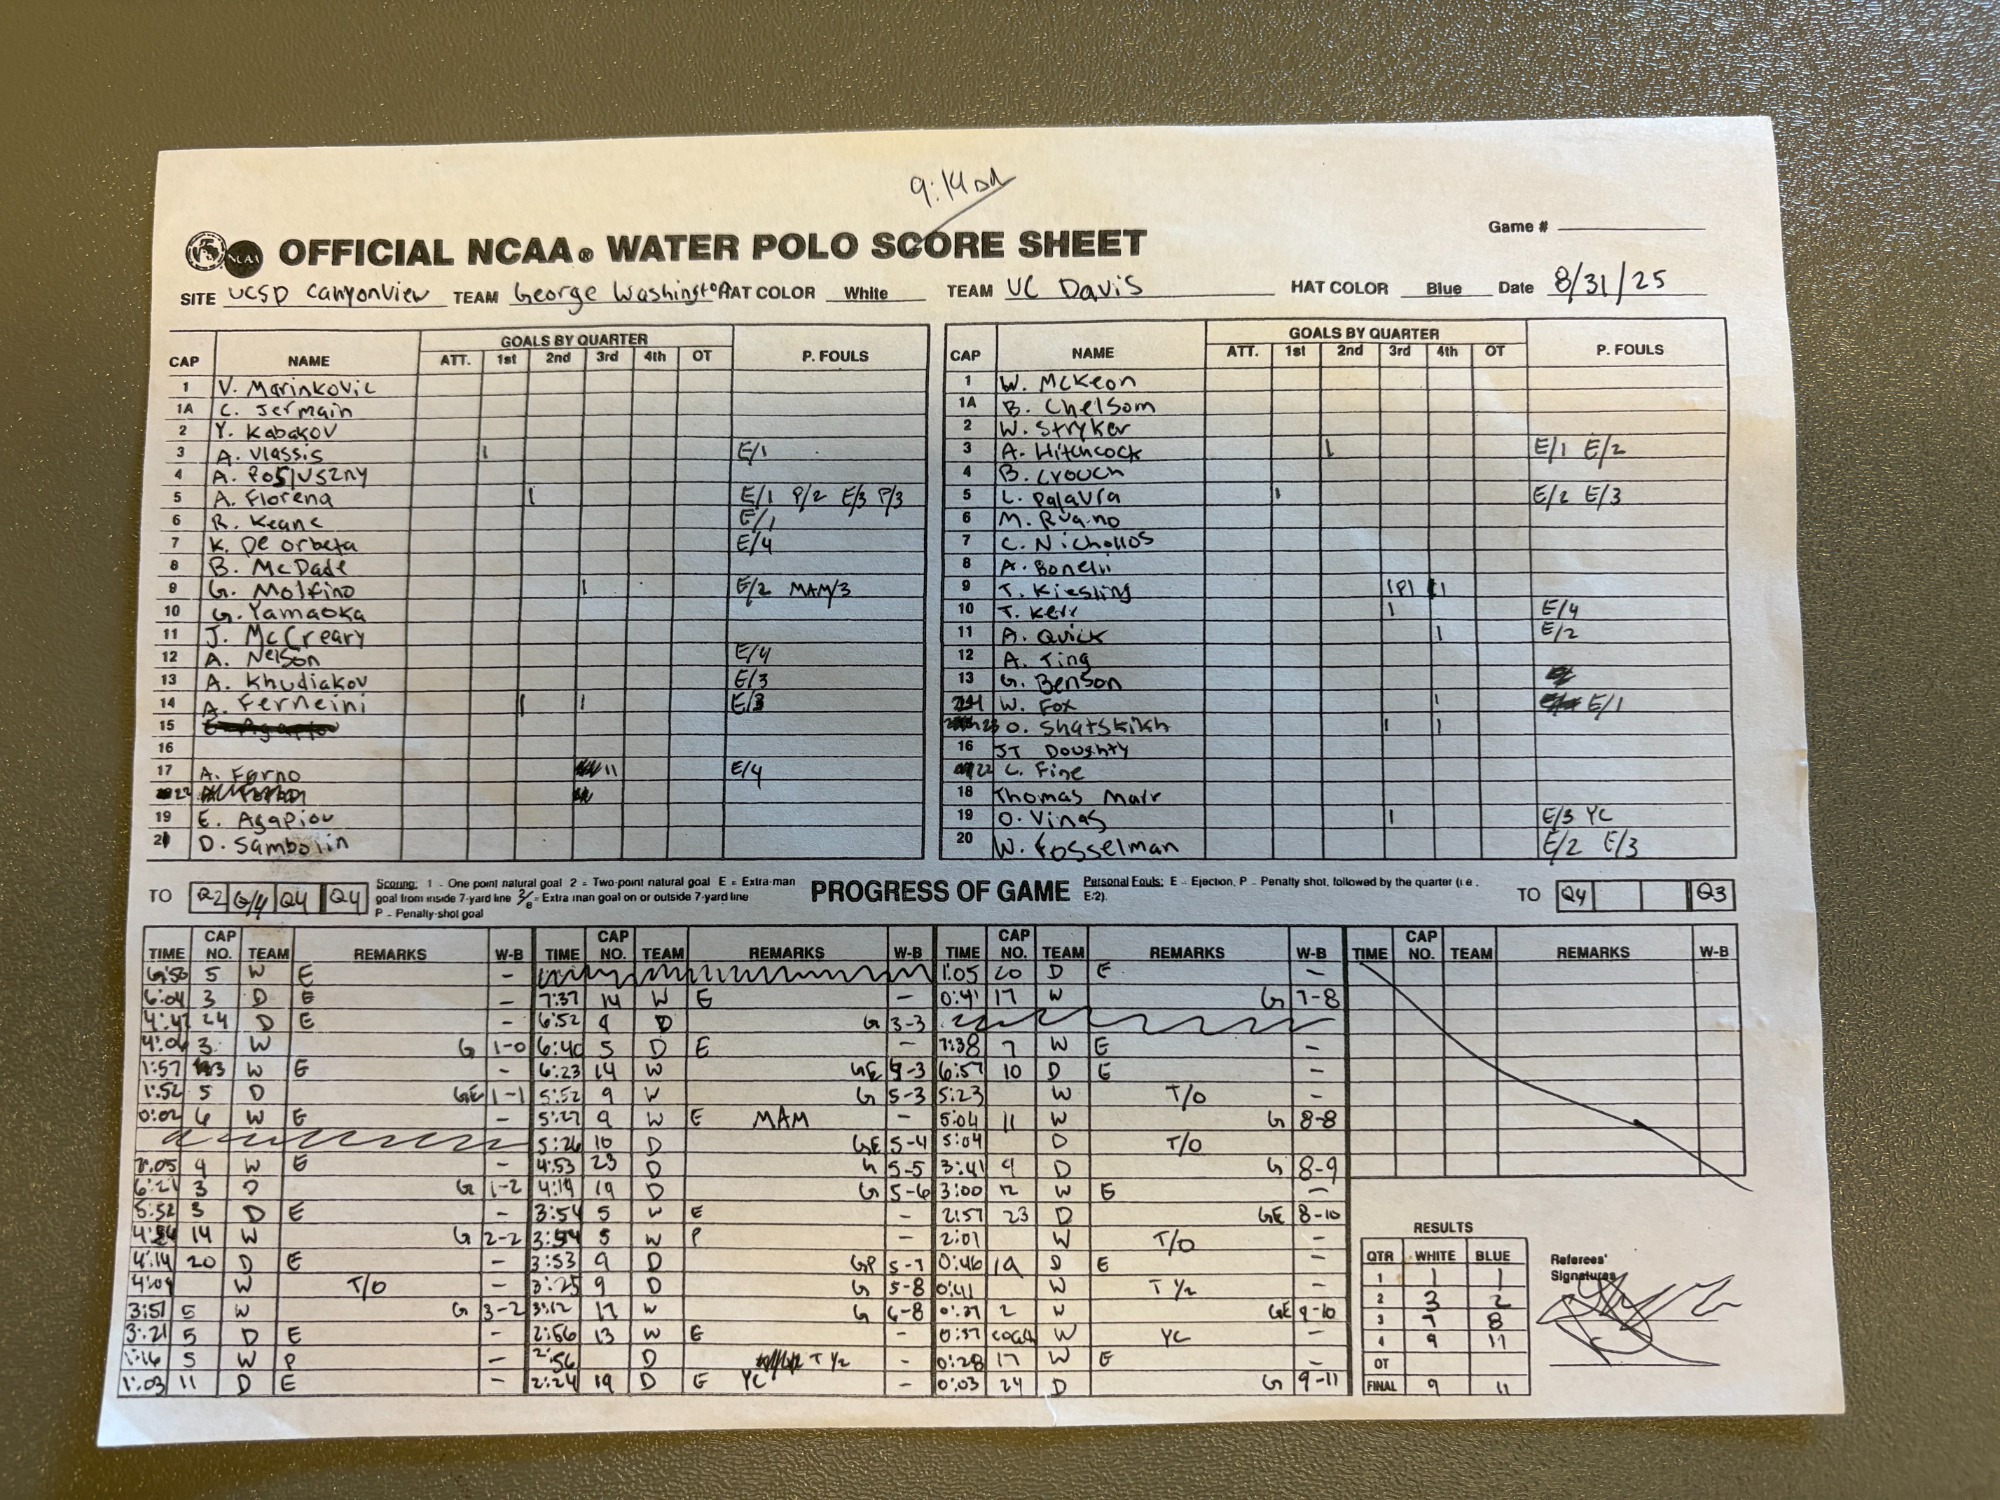 9:14
NCAA
OFFICIAL NCAA® WATER POLO SCORE SHEET
Game #
SITE UCSD Canyonview TEAM George Washington HAT COLOR White TEAM UC Davis HAT COLOR Blue Date 8/31/25
CAP NAME ATT. GOALS BY QUARTER 1st 2nd 3rd 4th OT P. FOULS
1 V. Marinkovic
1A C. Jermain
2 Y. Kabakov
3 A. Vlassis 1 E/1
4 A. Posluszny
5 A. Florena 1 E/1 P/2 E/3 P/3
6 R. Keane E/1
7 K. De orbeta E/4
8 B. McDade
9 G. Molfino 1 E/2 MAM/3
10 G. Yamaoka
11 J. McCreary
12 A. Nelson E/4
13 A. Khudiakov E/3
14 A. Ferneini 1 1 E/3
15
16
17 A. Farno 11 E/4
22
19 E. Agapiou
21 D. Sambolin
CAP NAME ATT. GOALS BY QUARTER 1st 2nd 3rd 4th OT P. FOULS
1 W. McKeon
1A B. Chelsom
2 W. Stryker
3 A. Hitchcock 1 E/1 E/2
4 B. Crouch
5 L. Palavra 1 E/2 E/3
6 M. Ruano
7 C. Nichollos
8 A. Bonelli
9 T. Kiesling 1P1 1
10 T. Kerr 1 E/4
11 A. Quick 1 E/2
12 A. Ting
13 G. Benson
24 W. Fox 1 E/1
23 O. Shatskikh 1 1
16 JT Doughty
22 C. Fine
18 Thomas Marr
19 O. Vinas 1 E/3 YC
20 W. Fosselman E/2 E/3
TO Q2 Q/4 Q4 Q4
Scoring: 1 - One point natural goal 2 = Two-point natural goal E = Extra-man
goal from inside 7-yard line 2/E = Extra man goal on or outside 7-yard line
P - Penalty-shot goal
PROGRESS OF GAME
Personal Fouls: E - Ejection, P - Penalty shot, followed by the quarter (i.e.
E/2).
TO Q4 Q3
TIME CAP NO. TEAM REMARKS W-B
6:58 5 W E -
6:04 3 D E -
4:47 24 D E -
4:06 3 W G 1-0
1:57 3 W E -
1:52 5 D GE 1-1
0:02 6 W E -
7:05 9 W E -
6:21 3 D G 1-2
5:52 3 D E -
4:54 14 W G 2-2
4:14 20 D E -
4:09 W T/O -
3:51 5 W G 3-2
3:21 5 D E -
1:16 5 W P -
1:03 11 D E -
TIME CAP NO. TEAM REMARKS W-B
7:37 14 W E -
6:52 9 D G 3-3
6:40 5 D E -
6:23 14 W GE 4-3
5:52 9 W G 5-3
5:27 9 W E MAM -
5:26 10 D GE 5-4
4:53 23 D G 5-5
4:19 19 D G 5-6
3:54 5 W E -
3:54 5 W P -
3:53 9 D GP 5-7
3:25 9 D G 5-8
3:12 17 W G 6-8
2:56 13 W E -
2:56 D T 1/2 -
2:24 19 D E YC -
TIME CAP NO. TEAM REMARKS W-B
1:05 20 D E -
0:41 17 W G 7-8
7:38 7 W E -
6:57 10 D E -
5:23 W T/O -
5:04 11 W G 8-8
5:04 D T/O -
3:41 9 D G 8-9
3:00 12 W E -
2:57 23 D GE 8-10
2:01 W T/O -
0:46 19 D E -
0:41 W T 1/2 -
0:37 2 W GE 9-10
0:37 coach W YC -
0:28 17 W E -
0:03 24 D G 9-11
TIME CAP NO. TEAM REMARKS W-B
RESULTS
QTR WHITE BLUE
1 1 1
2 3 2
3 7 8
4 9 11
OT
FINAL 9 11
Referees'
Signatures